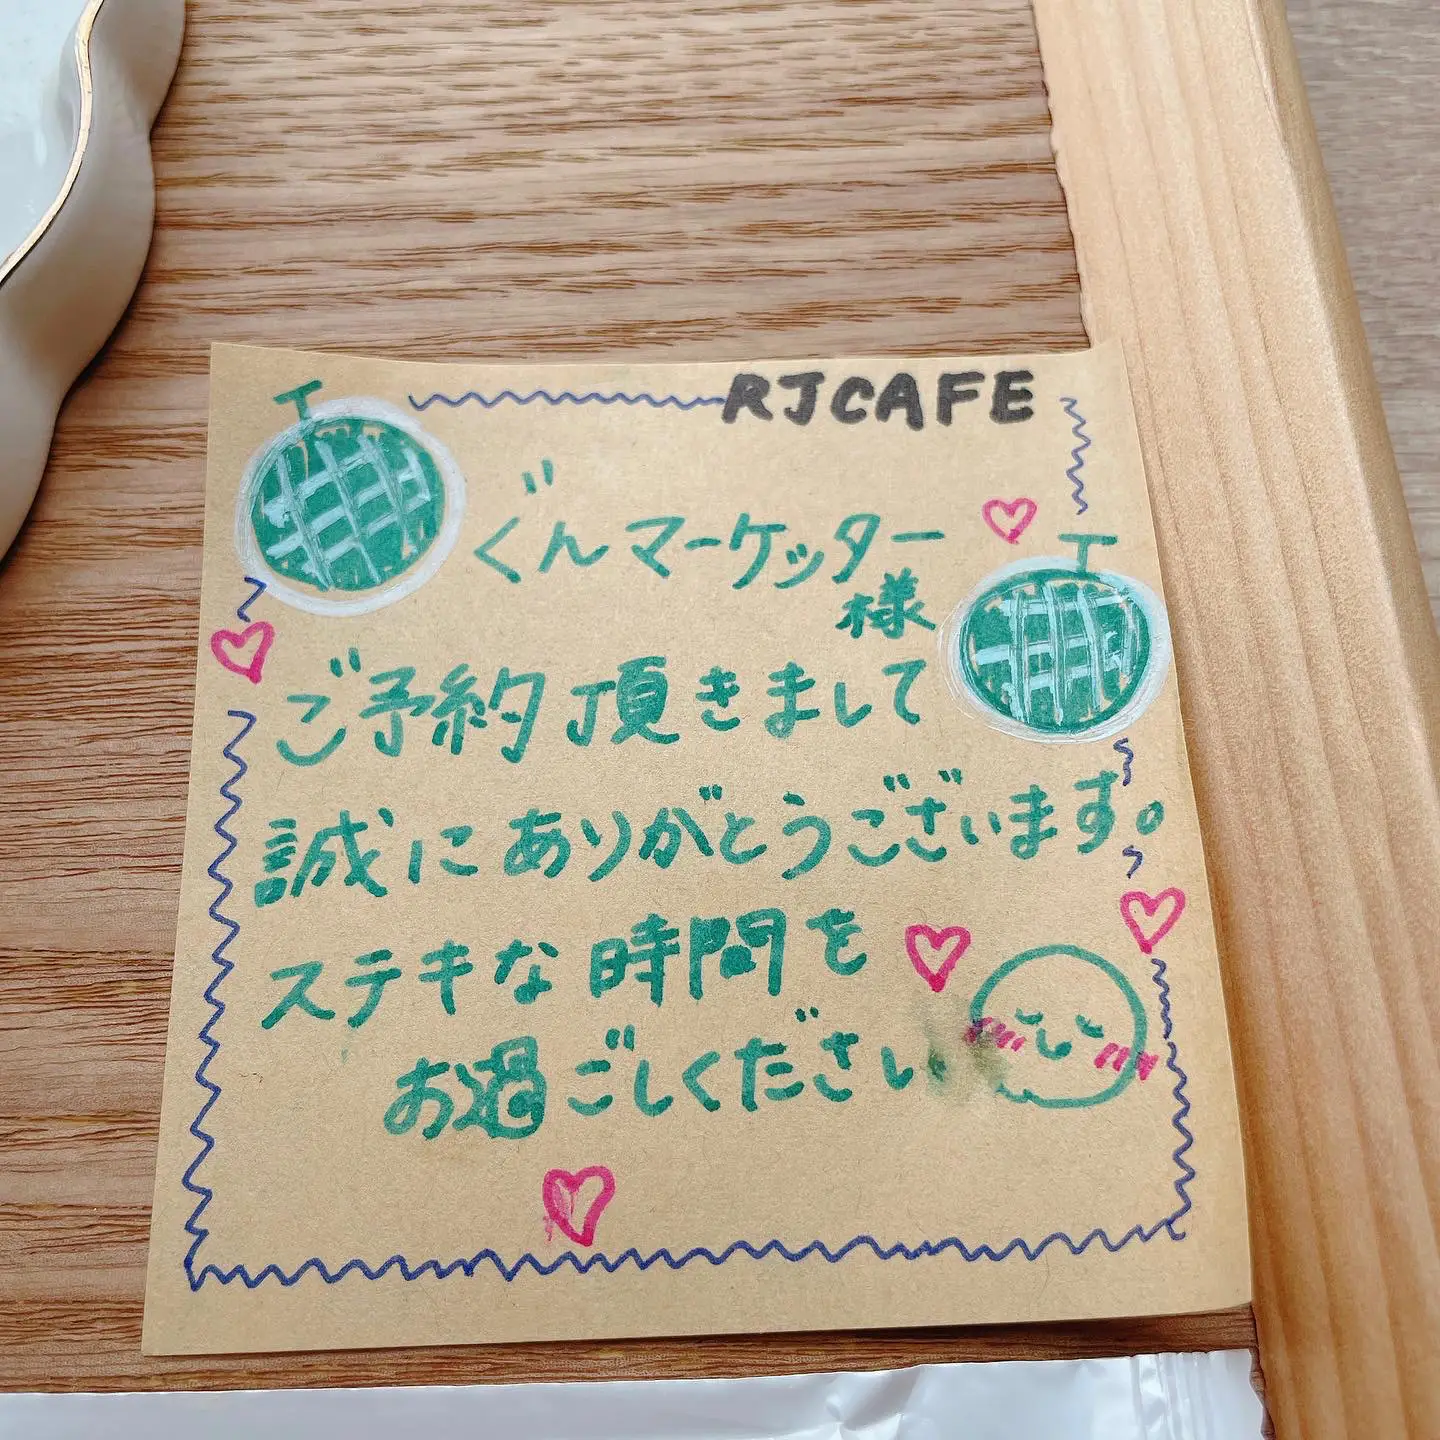 RJCAFE
ぐんマーケッター
様
ご予約頂きまして
誠にありがとうございます。
ステキな時間を
お過ごしください